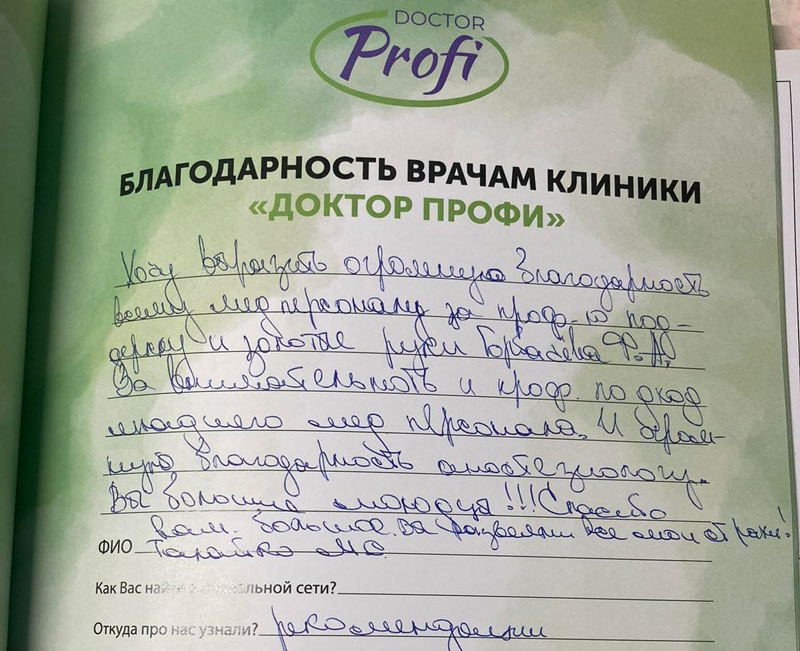 DOCTOR
Profi
БЛАГОДАРНОСТЬ ВРАЧАМ КЛИНИКИ
«ДОКТОР ПРОФИ»
Хочу выразить огромную благодарность
всему мед персоналу за проф-ю под-
держку и золотые руки Горбачёва Ф.А.
За внимательность и проф. подход
младшего мед персонала. И огром-
ную благодарность анастезиологу.
Вы большие молодцы!!! Спасибо
вам большое. Вы развеяли все мои страхи!
ФИО М.С.
Как Вас найти в социальной сети?
Откуда про нас узнали? рекомендации